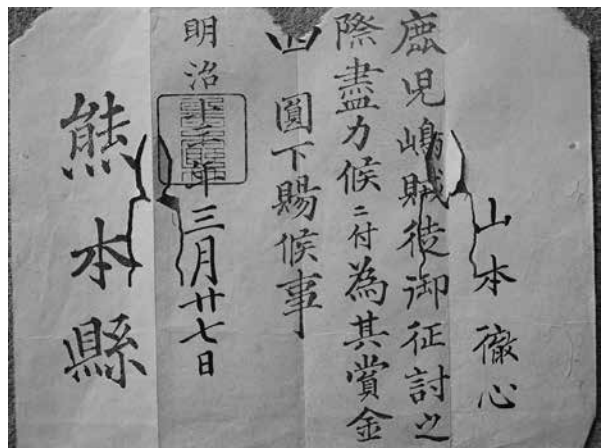 山本徹心
鹿児嶋賊徒御征討之
際盡力候ニ付為其賞金
四圓下賜候事
明治十年三月廿七日
熊本縣